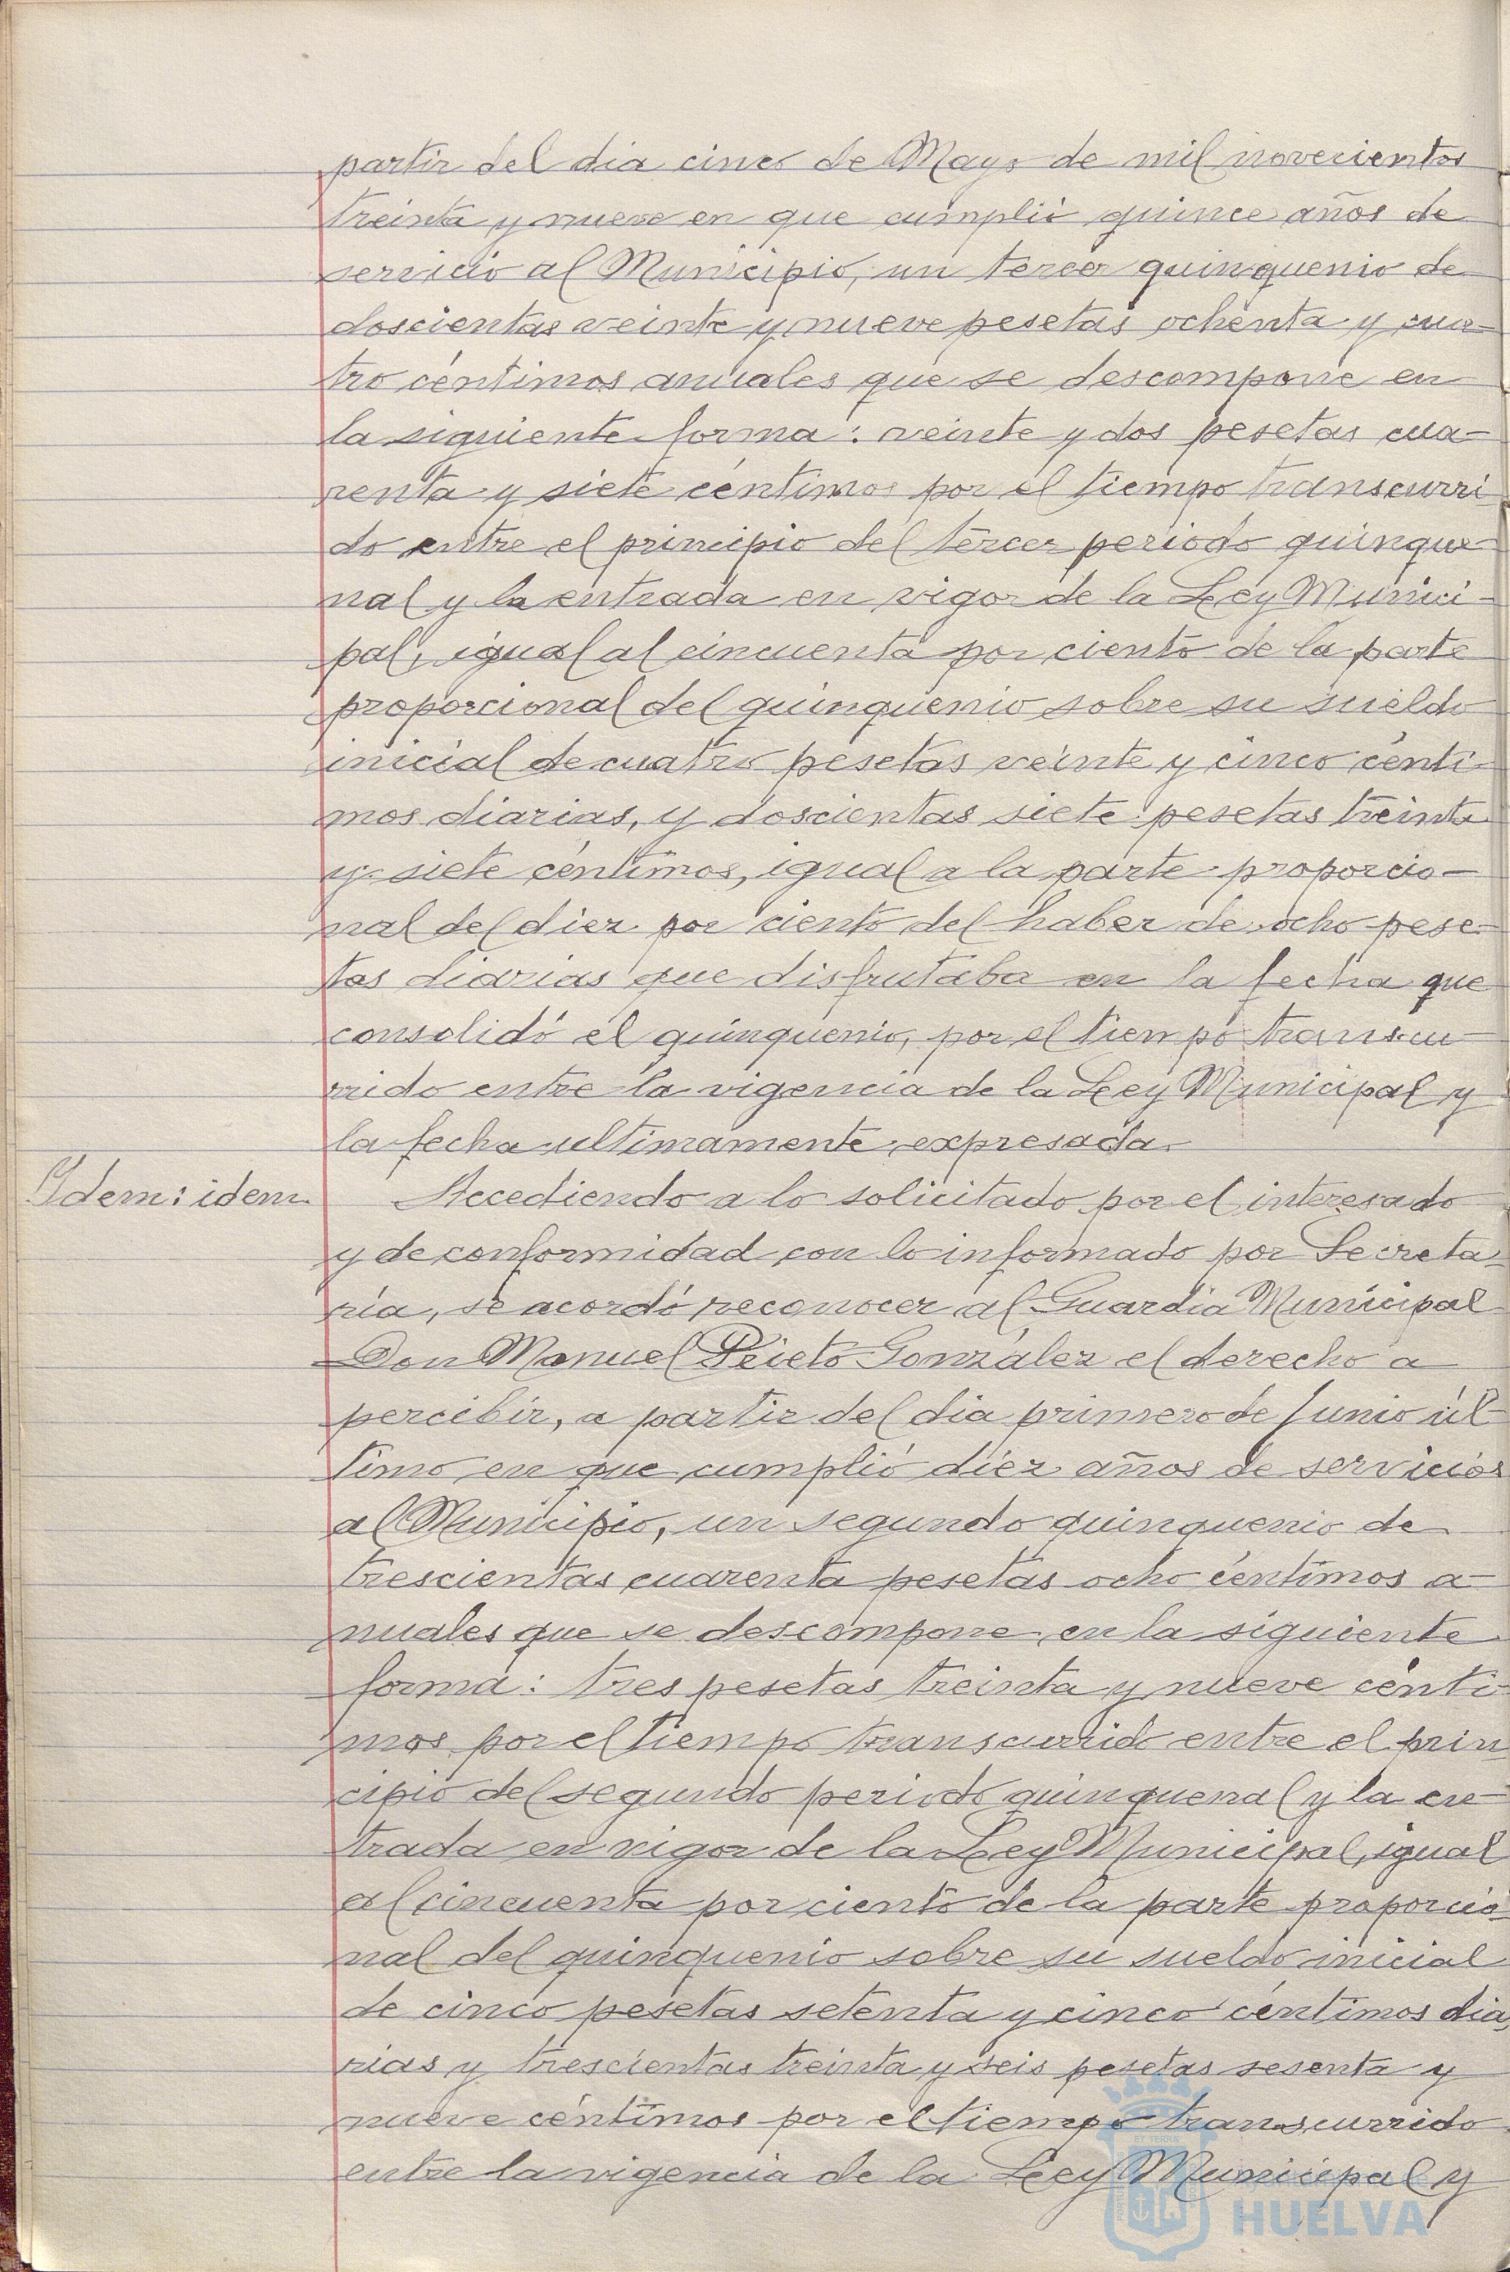 partir del dia cinco de Mayo de mil novecientos
treinta y nueve en que cumplió quince años de
servicio al Municipio, un tercer quinquenio de
doscientas veinte y nueve pesetas ochenta y cua-
tro céntimos anuales que se descompone en
la siguiente forma: veinte y dos pesetas cua-
renta y siete céntimos por el tiempo transcurri-
do entre el principio del tercer periodo quinque-
nal y la entrada en vigor de la Ley Munici-
pal, igual al cincuenta por ciento de la parte
proporcional del quinquenio sobre su sueldo
inicial de cuatro pesetas veinte y cinco cénti-
mos diarias, y doscientas siete pesetas treinta
y siete céntimos, igual a la parte proporcio-
nal del diez por ciento del haber de ocho pese-
tas diarias que disfrutaba en la fecha que
consolidó el quinquenio, por el tiempo transcu-
rrido entre la vigencia de la Ley Municipal y
la fecha ultimamente expresada.
Idem: idem. Accediendo a lo solicitado por el interesado
y de conformidad con lo informado por Secreta-
ría, se acordó reconocer al Guardia Municipal
Don Manuel Prieto González el derecho a
percibir, a partir del dia primero de Junio úl-
timo en que cumplió diez años de servicios
al Municipio, un segundo quinquenio de
trescientas cuarenta pesetas ocho céntimos a-
nuales que se descompone en la siguiente
forma: tres pesetas treinta y nueve cénti-
mos por el tiempo transcurrido entre el prin-
cipio del segundo periodo quinquenal y la en-
trada en vigor de la Ley Municipal, igual
al cincuenta por ciento de la parte proporcio-
nal del quinquenio sobre su sueldo inicial
de cinco pesetas setenta y cinco céntimos dia-
rias y trescientas treinta y seis pesetas sesenta y
nueve céntimos por el tiempo transcurrido
entre la vigencia de la Ley Municipal y
HUELVA